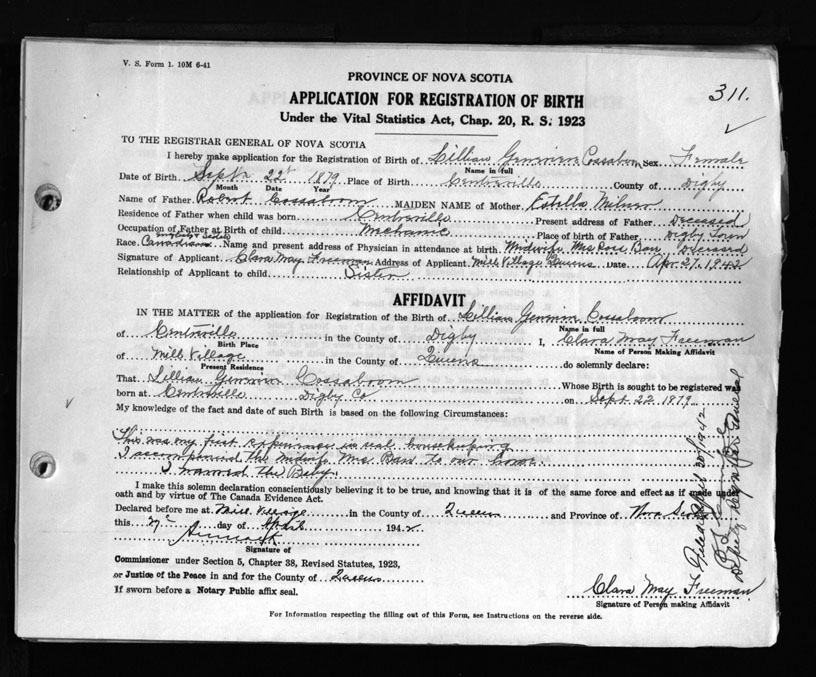 V. S. Form 1. 10M 6-41
PROVINCE OF NOVA SCOTIA
311.
APPLICATION FOR REGISTRATION OF BIRTH
Under the Vital Statistics Act, Chap. 20, R. S. 1923
TO THE REGISTRAR GENERAL OF NOVA SCOTIA
I hereby make application for the Registration of Birth of Lillian Cossaboom Sex Female
Name in full
Date of Birth Sept 22 1879 Place of Birth Centreville County of Digby
Month Date Year
Name of Father Robert Cossaboom MAIDEN NAME of Mother Estella Milner
Residence of Father when child was born Centreville Present address of Father Deceased
Occupation of Father at Birth of child Mechanic Place of Birth of Father Digby Town
Race. Canadian Name and present address of Physician in attendance at birth. Midwife Mrs Deceased
Signature of Applicant Clara May Freeman Address of Applicant Mill Village Queens Date Apr 27, 1942
Relationship of Applicant to child Sister
AFFIDAVIT
IN THE MATTER of the application for Registration of the Birth of Lillian Cossaboom
Name in full
of Centreville in the County of Digby I, Clara May Freeman
Birth Place Name of Person Making Affidavit
of Mill Village in the County of Queens do solemnly declare:
Present Residence
That Lillian Cossaboom Whose Birth is sought to be registered was
born at Centreville Digby Co on Sept 22 1879
My knowledge of the fact and date of such Birth is based on the following Circumstances:
This was my first experience in real housekeeping
I accompanied the midwife Mrs to our home.
I the Baby.
I make this solemn declaration conscientiously believing it to be true, and knowing that it is of the same force and effect as if made under
oath and by virtue of The Canada Evidence Act.
Declared before me at Mill Village in the County of Queens and Province of Nova Scotia
this 27 day of April 1942
Signature of
Commissioner under Section 5, Chapter 38, Revised Statutes, 1923,
or Justice of the Peace in and for the County of Queens
If sworn before a Notary Public affix seal.
Clara May Freeman
Signature of Person making Affidavit
For Information respecting the filling out of this Form, see Instructions on the reverse side.
Filed April 30/1942
Deputy Registrar General